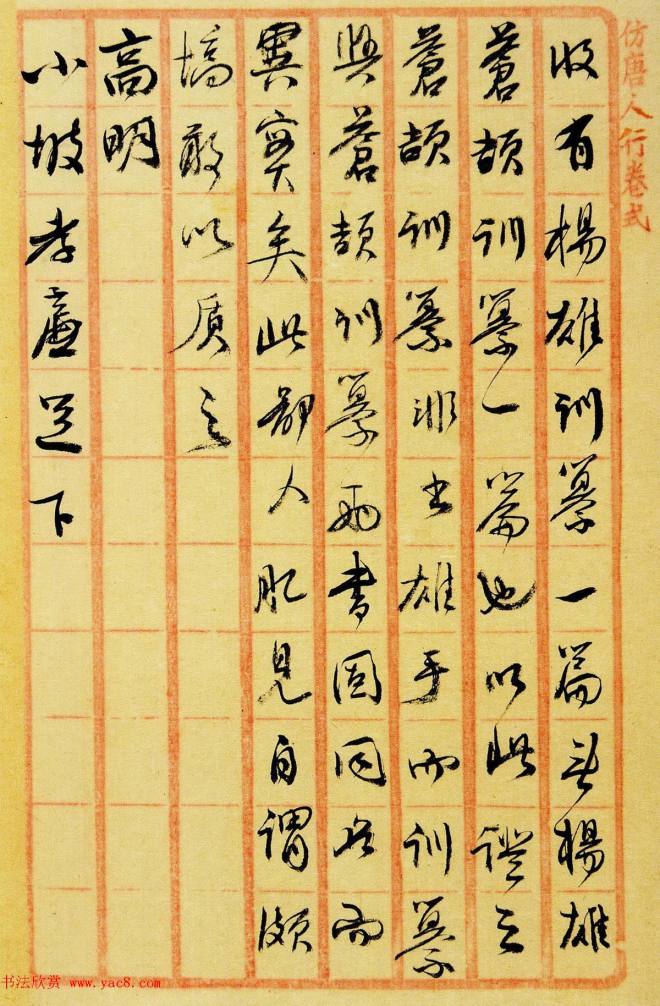 仿唐人行卷式
收有楊雄訓纂一篇無楊雄
蒼頡訓纂一篇也以此證之
蒼頡訓纂非出雄手而訓纂
與蒼頡訓纂兩書固同名而
異實矣此鄙人肊見自謂頗
塙敢以質之
高明
小坡孝廉足下
书法欣赏 www.yac8.com